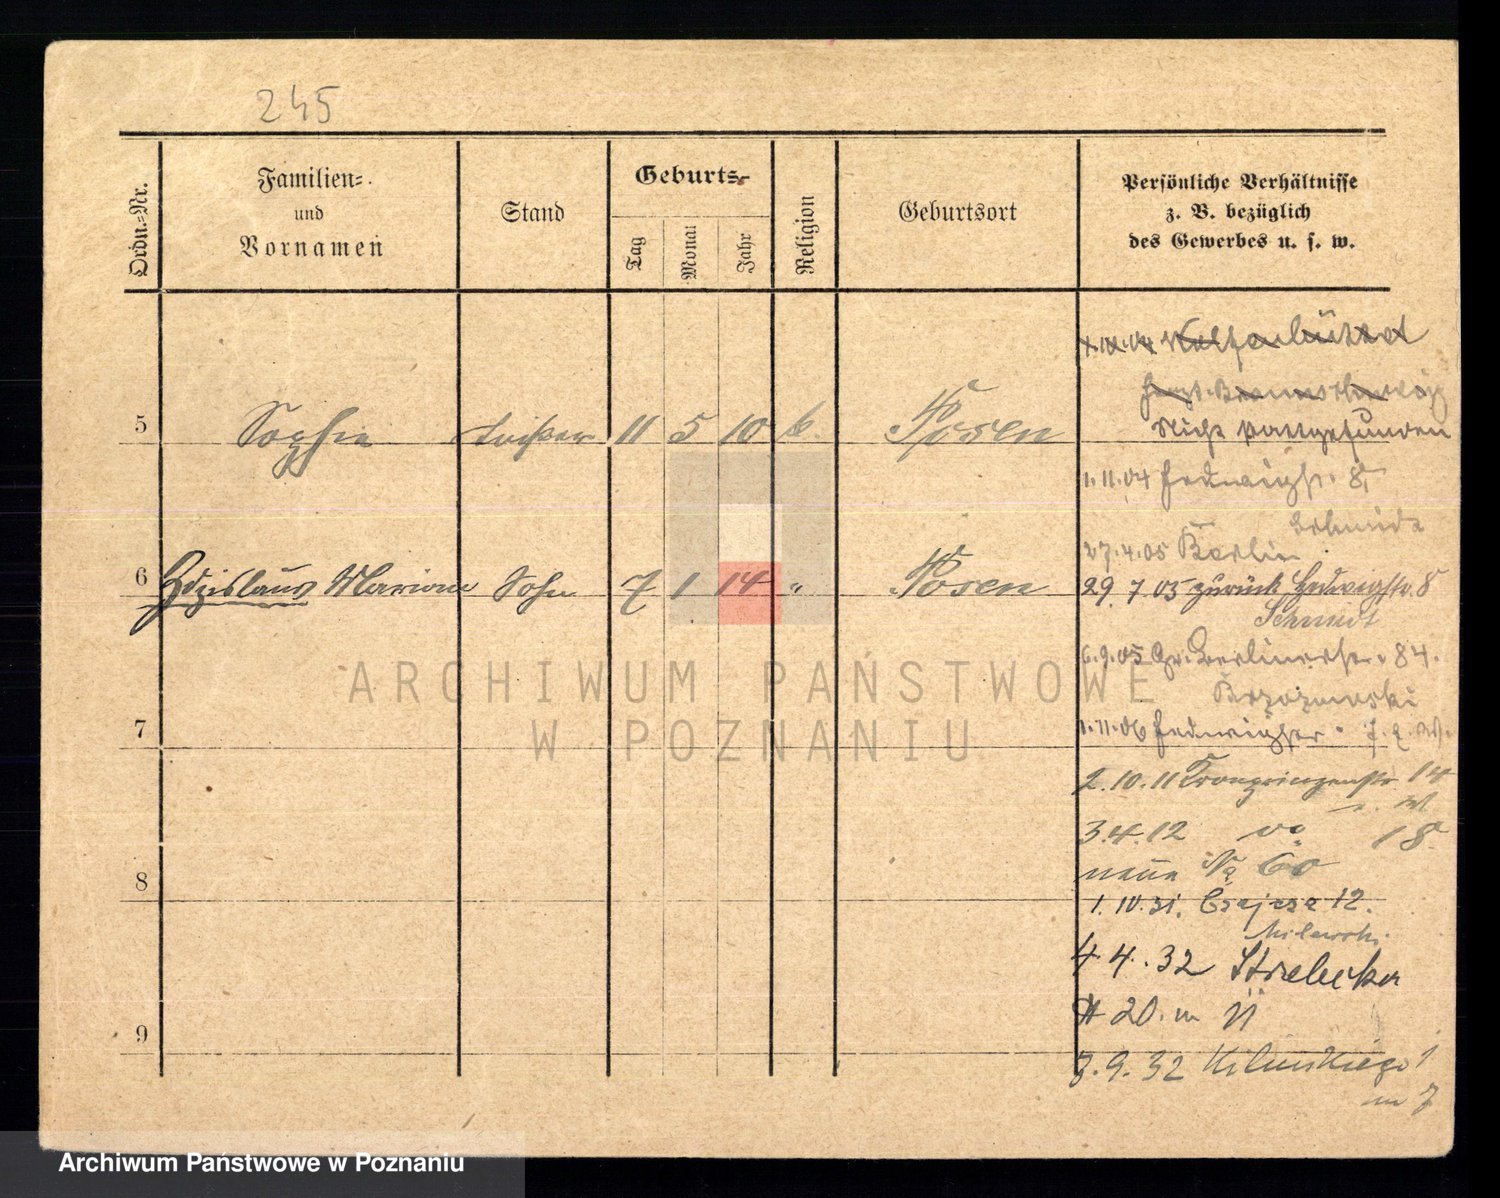 245
Ordn.-Nr.
Familien-
und
Vornamen
Stand
Geburts-
Tag
Monat
Jahr
Religion
Geburtsort
Persönliche Verhältnisse
z. B. bezüglich
des Gewerbes u. s. w.
Wolfenbüttel
5 Sophie Tochter 11 5 10 k. Posen
Nicht stattgefunden
1.11.04 Hedwigstr. 8,
Schmidt
27.4.05 Berlin.
6 Zdzislaus Marian Sohn 7 1 14 " Posen
29.7.05 zurück Hedwigstr. 8
Schmidt
6.9.05 Gr. Berlinerstr. 84.
Brzozowski
7
1.11.06 Hedwigstr.
2.10.11 Kronprinzenstr. 14
3.4.12 do 18
8
neue No 60
1.10.31. 12.
Milewski.
4.4.32 Strzelecka
20. m 11
9
3.9.32 Kilińskiego 1
m 7
ARCHIWUM PAŃSTWOWE
W POZNANIU
Archiwum Państwowe w Poznaniu